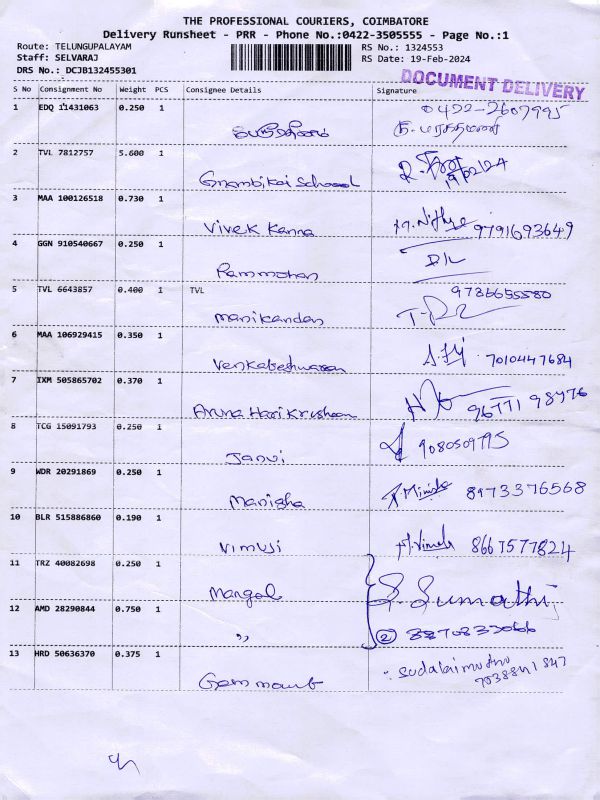 THE PROFESSIONAL COURIERS, COIMBATORE
Delivery Runsheet - PRR - Phone No.:0422-3505555 - Page No.:1
Route: TELUNGUPALAYAM RS No.: 1324553
Staff: SELVARAJ RS Date: 19-Feb-2024
DRS No.: DCJB132455301
DOCUMENT DELIVERY
S No Consignment No Weight PCS Consignee Details Signature
1 EDQ 11431063 0.250 1 0422-2607995
2 TVL 7812757 5.600 1
3 MAA 100126518 0.730 1
Vivek Kanna 9791693649
4 GGN 910540667 0.250 1
Rammohan
5 TVL 6643857 0.400 1 TVL
Manikandan
6 MAA 106929415 0.350 1
Venkateshwaran 7010447684
7 IXM 505865702 0.370 1
Aruna Hari Krishnan 96771 98476
8 TCG 15091793 0.250 1
Janvi 9080509795
9 WDR 20291869 0.250 1
Manisha 8973376568
10 BLR 515886860 0.190 1
Vimuji 8667577824
11 TRZ 40082698 0.250 1
Mangal S. Sumathi
12 AMD 28290844 0.750 1
〃 ②
13 HRD 50636370 0.375 1 Sudalaimuthu